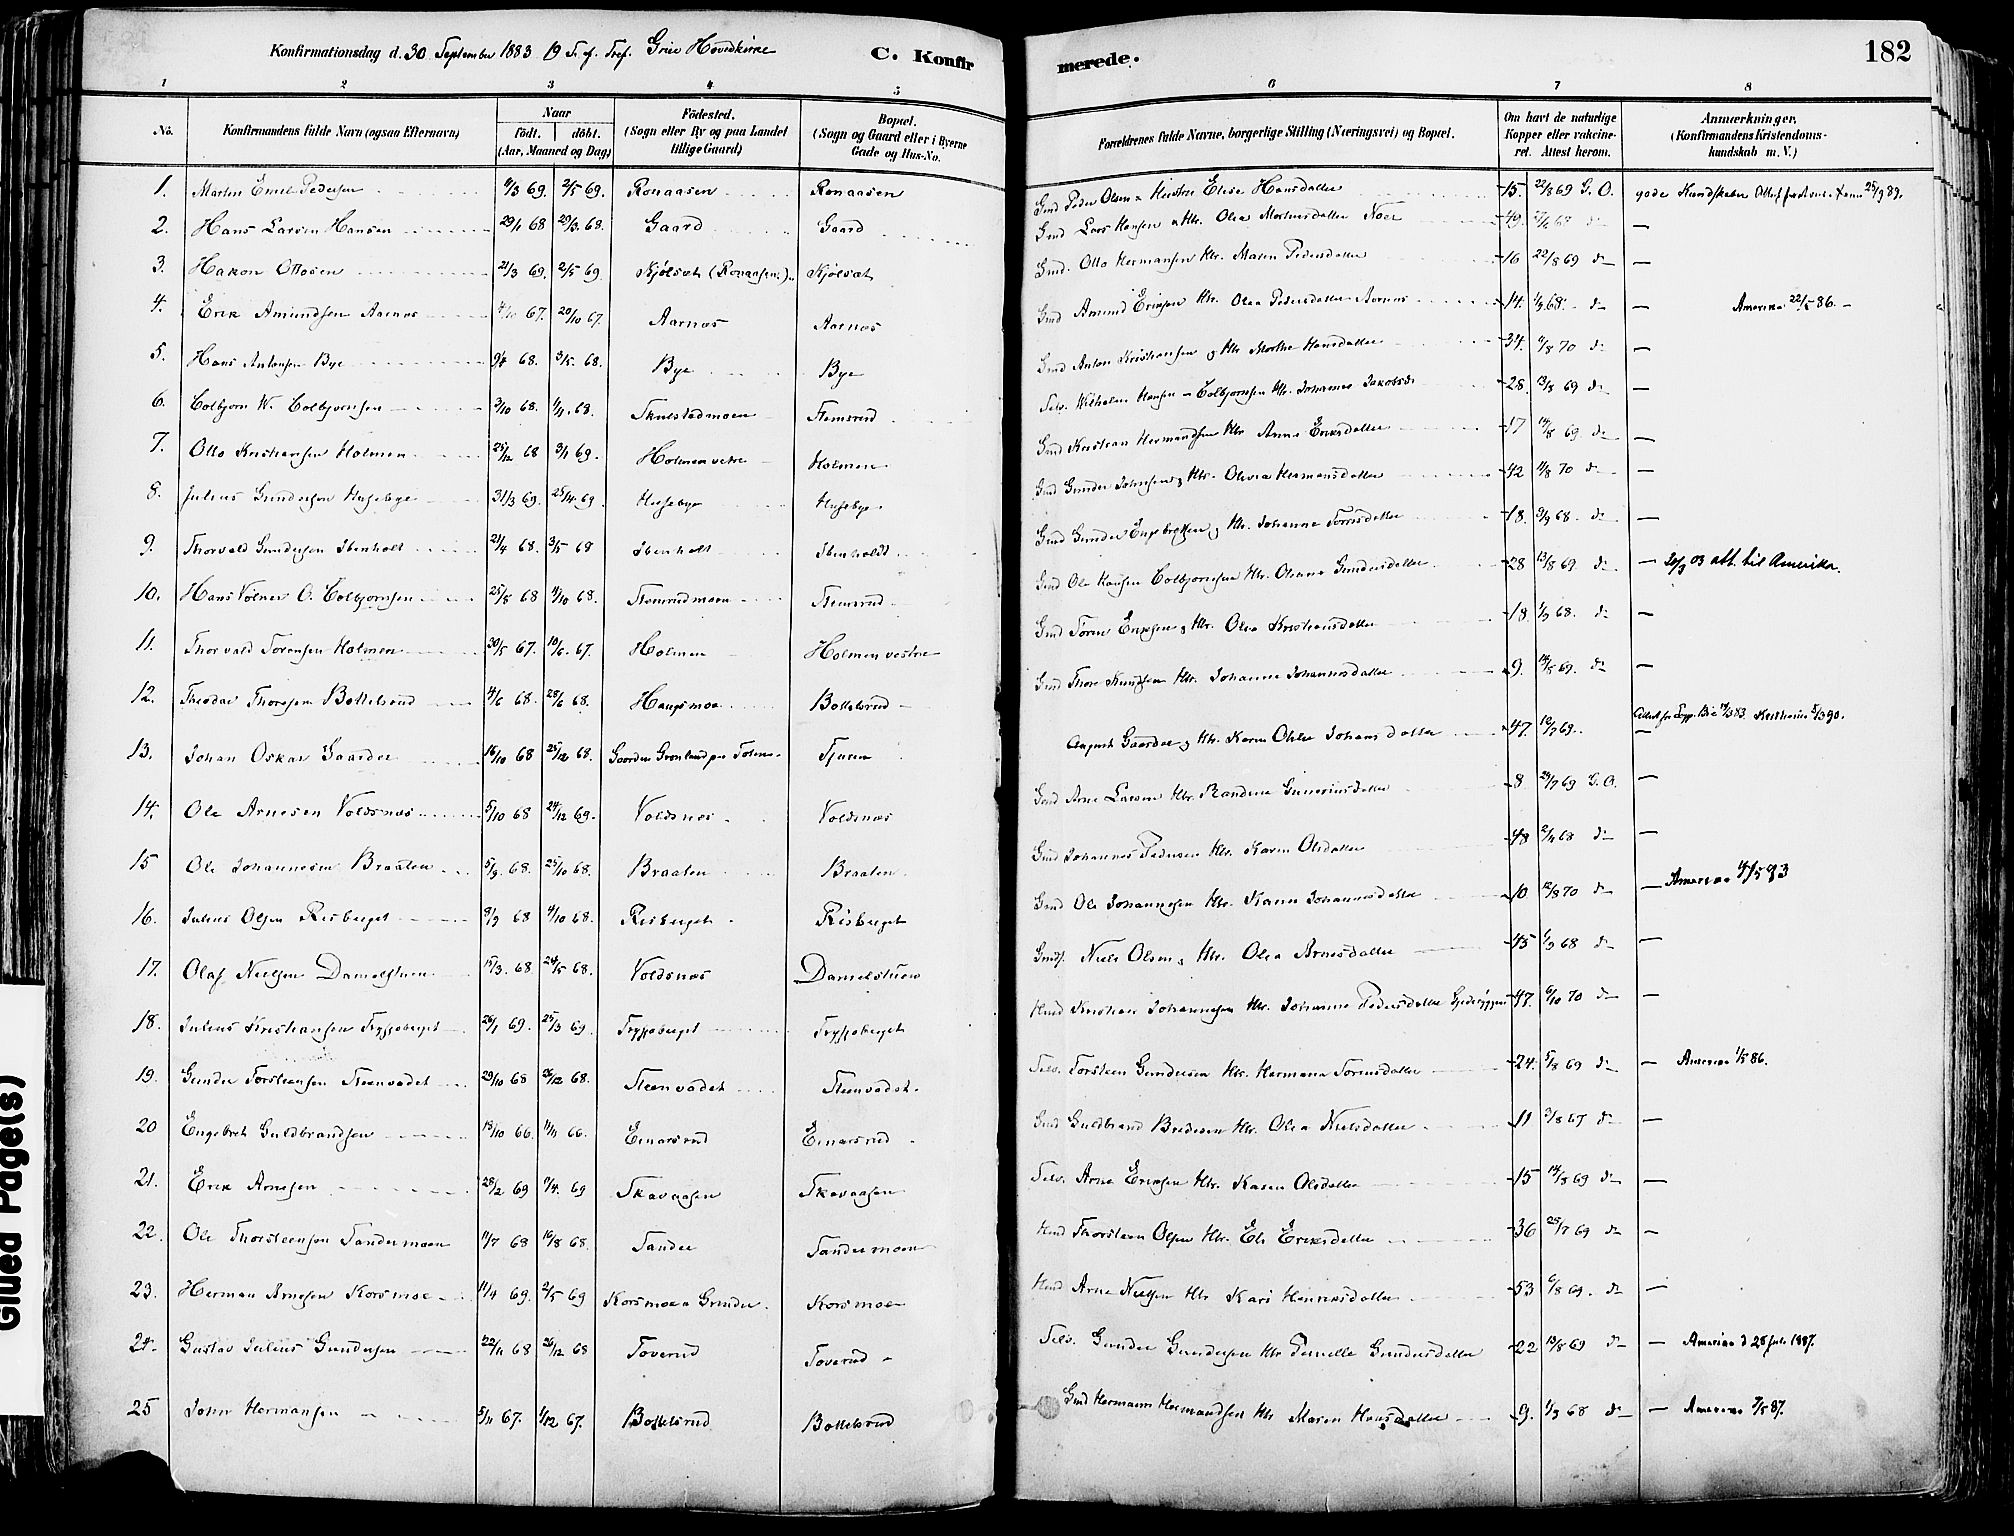 Konfirmationsdag d. 30 September 1883 19 S. e. Tref. Grue Hovedkirke
C. Konfirmerede.
182
1 2 3 4 5 6 7 8
No.
Konfirmandens fulde Navn (ogsaa Efternavn)
Naar
født. døbt.
(Aar, Maaned og Dag)
Fødested.
(Sogn eller By og paa Landet
tillige Gaard)
Bopæl.
(Sogn og Gaard eller i Byerne
Gade og Hus-No.
Forældrenes fulde Navne, borgerlige Stilling (Næringsvei) og Bopæl.
Om havt de naturlige
Kopper eller vakcine-
ret. Attest herom.
Anmærkninger,
(Konfirmandens Kristendoms-
kundskab m. V.)
1. Martin Emil Pedersen 2/5 69. Rønaasen Rønaasen Gmd Peder Olsen & Hustru Elise Hansdatter 15. 22/8 69 G. O. gode Kundskaber
2. Hans Larsen Hansen 29/1 68 29/3 68. Gaard Gaard Gmd Lars Hansen & Hr. Olea Mortensdatter 49.
3. Hakon Ottosen 21/3 69. 2/5 69. Kjølsæt (Rønaasen) Kjølsæt Gmd. Otto Hermansen Hr. Maren Pedersdatter 16 22/8 69 do —
4. Erik Amundsen Aarnes 4/10 67. 20/10 67. Aarnæs Aarnæs Gmd Amund Eriksen Hr. Olea Pedersdatter Aarnes 14. 1/9 68. do — Amerika 22/5 86.
5. Hans Antonsen Bye 9/4 68. 3/5 68. Bye Bye Gmd Anton Kristiansen & Hr Marthe Hansdatter 34. 11/8 70 do —
6. Colbjørn W. Colbjørnsen 3/10 68. 1/11 68. Skulstadmoen Stemsrud Selv. Wilhelm Hansen Colbjørnsen Hr. Johanne Jakobsdr 28. 13/8 69 do —
7. Otto Kristiansen Holmen 25/12 68 3/1 69. Holmen vestre Holmen Gmd Kristian Hermandsen Hr Anne Eriksdatter 17 14/8 69 do —
8. Julius Gundersen Husebye 31/3 69. 25/4 69 Husebye Husebye Gmd Gunder Johnsen & Hr. Olivia Hermansdatter 42 11/8 70 do —
9. Thorvald Gundersen Ibenholt 21/4 68. 3/5 68 Ibenholt Ibenholdt Gmd Gunder Engebretsen & Hr. Johanne Torersdatter 18. 9/9 68. do —
10. Hans Volner O. Colbjørnsen 25/8 68 11/10 68. Stemsrudmoen Stemsrud Gmd Ole Hansen Colbjørnsen Hr. Oleane Gundersdatter 28 13/8 69. do — 20/3 03 att. til Amerika.
11. Thorvald Torersen Holmen 30/5 67. 10/6 67. Holmen Holmen vestre Gmd Torer Eriksen & Hr. Olea Kristiansdatter 18. 1/9 68. do —
12. Theodor Thoresen Bottelsrud 4/6 68. 28/6 68. Haugsmoe Bottelsrud Gmd Thore Knudsen Hr. Johanne Johannesdatter 9. 14/8 69. do —
13. Johan Oskar Gaarder 16/10 68 25/12 68. Gaarden Grønland paa Toten Tjuren August Gaarder & Hr. Karen Othilie Johansdatter 47.
14. Ole Arnesen Voldsnæs 5/10 68 24/12 69. Voldsnæs Voldsnæs Gmd Arne Larsen Hr. Randine Gunerius datter 8 24/7 69 G. O. —
15 Ole Johannesen Braaten 5/9 68. 25/10 68. Braaten Braaten Gmd Johannes Pedersen Hr. Karen Olsdatter 48 2/11 68 do —
16. Julius Olsen Risberget 9/9 68 4/10 68. Risberget Risberget Gmd Ole Johannesen Hr. Karen Johannesdatter 10 12/8 70 do — Amerika 4/5 93
17. Olaf Nielsen Danielstuen 15/3 68. 24/5 68. Voldsnæs Danielstuen Niels Olsen & Hr. Olea Arnesdatter 45 1/9 68 do —
18. Julius Kristiansen Frysjøberget 26/1 69. 25/3 69. Frysjøberget Frysjøberget Hmd Kristian Johannesen Hr. Johanne Pedersdatter 47. 6/10 70 do —
19. Gunder Torsteensen Steenvadet 29/10 68 26/12 68. Steenvadet Steenvadet. Selv. Torsteen Gundersen Hr. Hermana Torersdatter 24. 5/8 69 do — Amerika 1/5 86.
20 Engebret Guldbrandsen 15/10 66. 11/11 66. Einarsrud Einarsrud Gmd Guldbrand Bredesen Hr. Olea Nielsdatter 11 3/8 67 do —
21. Erik Arnesen 28/2 69 4/4 69 Skavaasen Skavaasen Selv. Arne Eriksen Hr. Karen Olsdatter 15 14/8 69 do —
22. Ole Thorsteensen Sandermoen 11/7 68 16/8 68. Sander Sandermoen Hmd Thorsteen Olsen Hr. Eli Eriksdatter 36 28/7 69 do —
23. Herman Arnesen Korsmoe 11/4 69. 2/5 69 Korsmoe Grinder Korsmoe Hmd Arne Nielsen Hr Kari Henriksdatter 53 6/8 69. do —
24. Gustav Julius Gundersen 22/11 68 26/12 68 Toverud Toverud Selv. Gunder Gundersen Hr Pernille Gundersdatter 22 19/8 69 do — Amerika d 28 1887.
25 John Hermansen 5/11 67. 1/12 67. Bottelsrud Bottelsrud Gmd Hermann Hermandsen Hr Maren Hansdatter 9. 1/9 68 do — Amerika 7/5 87.
Glued Page(s)